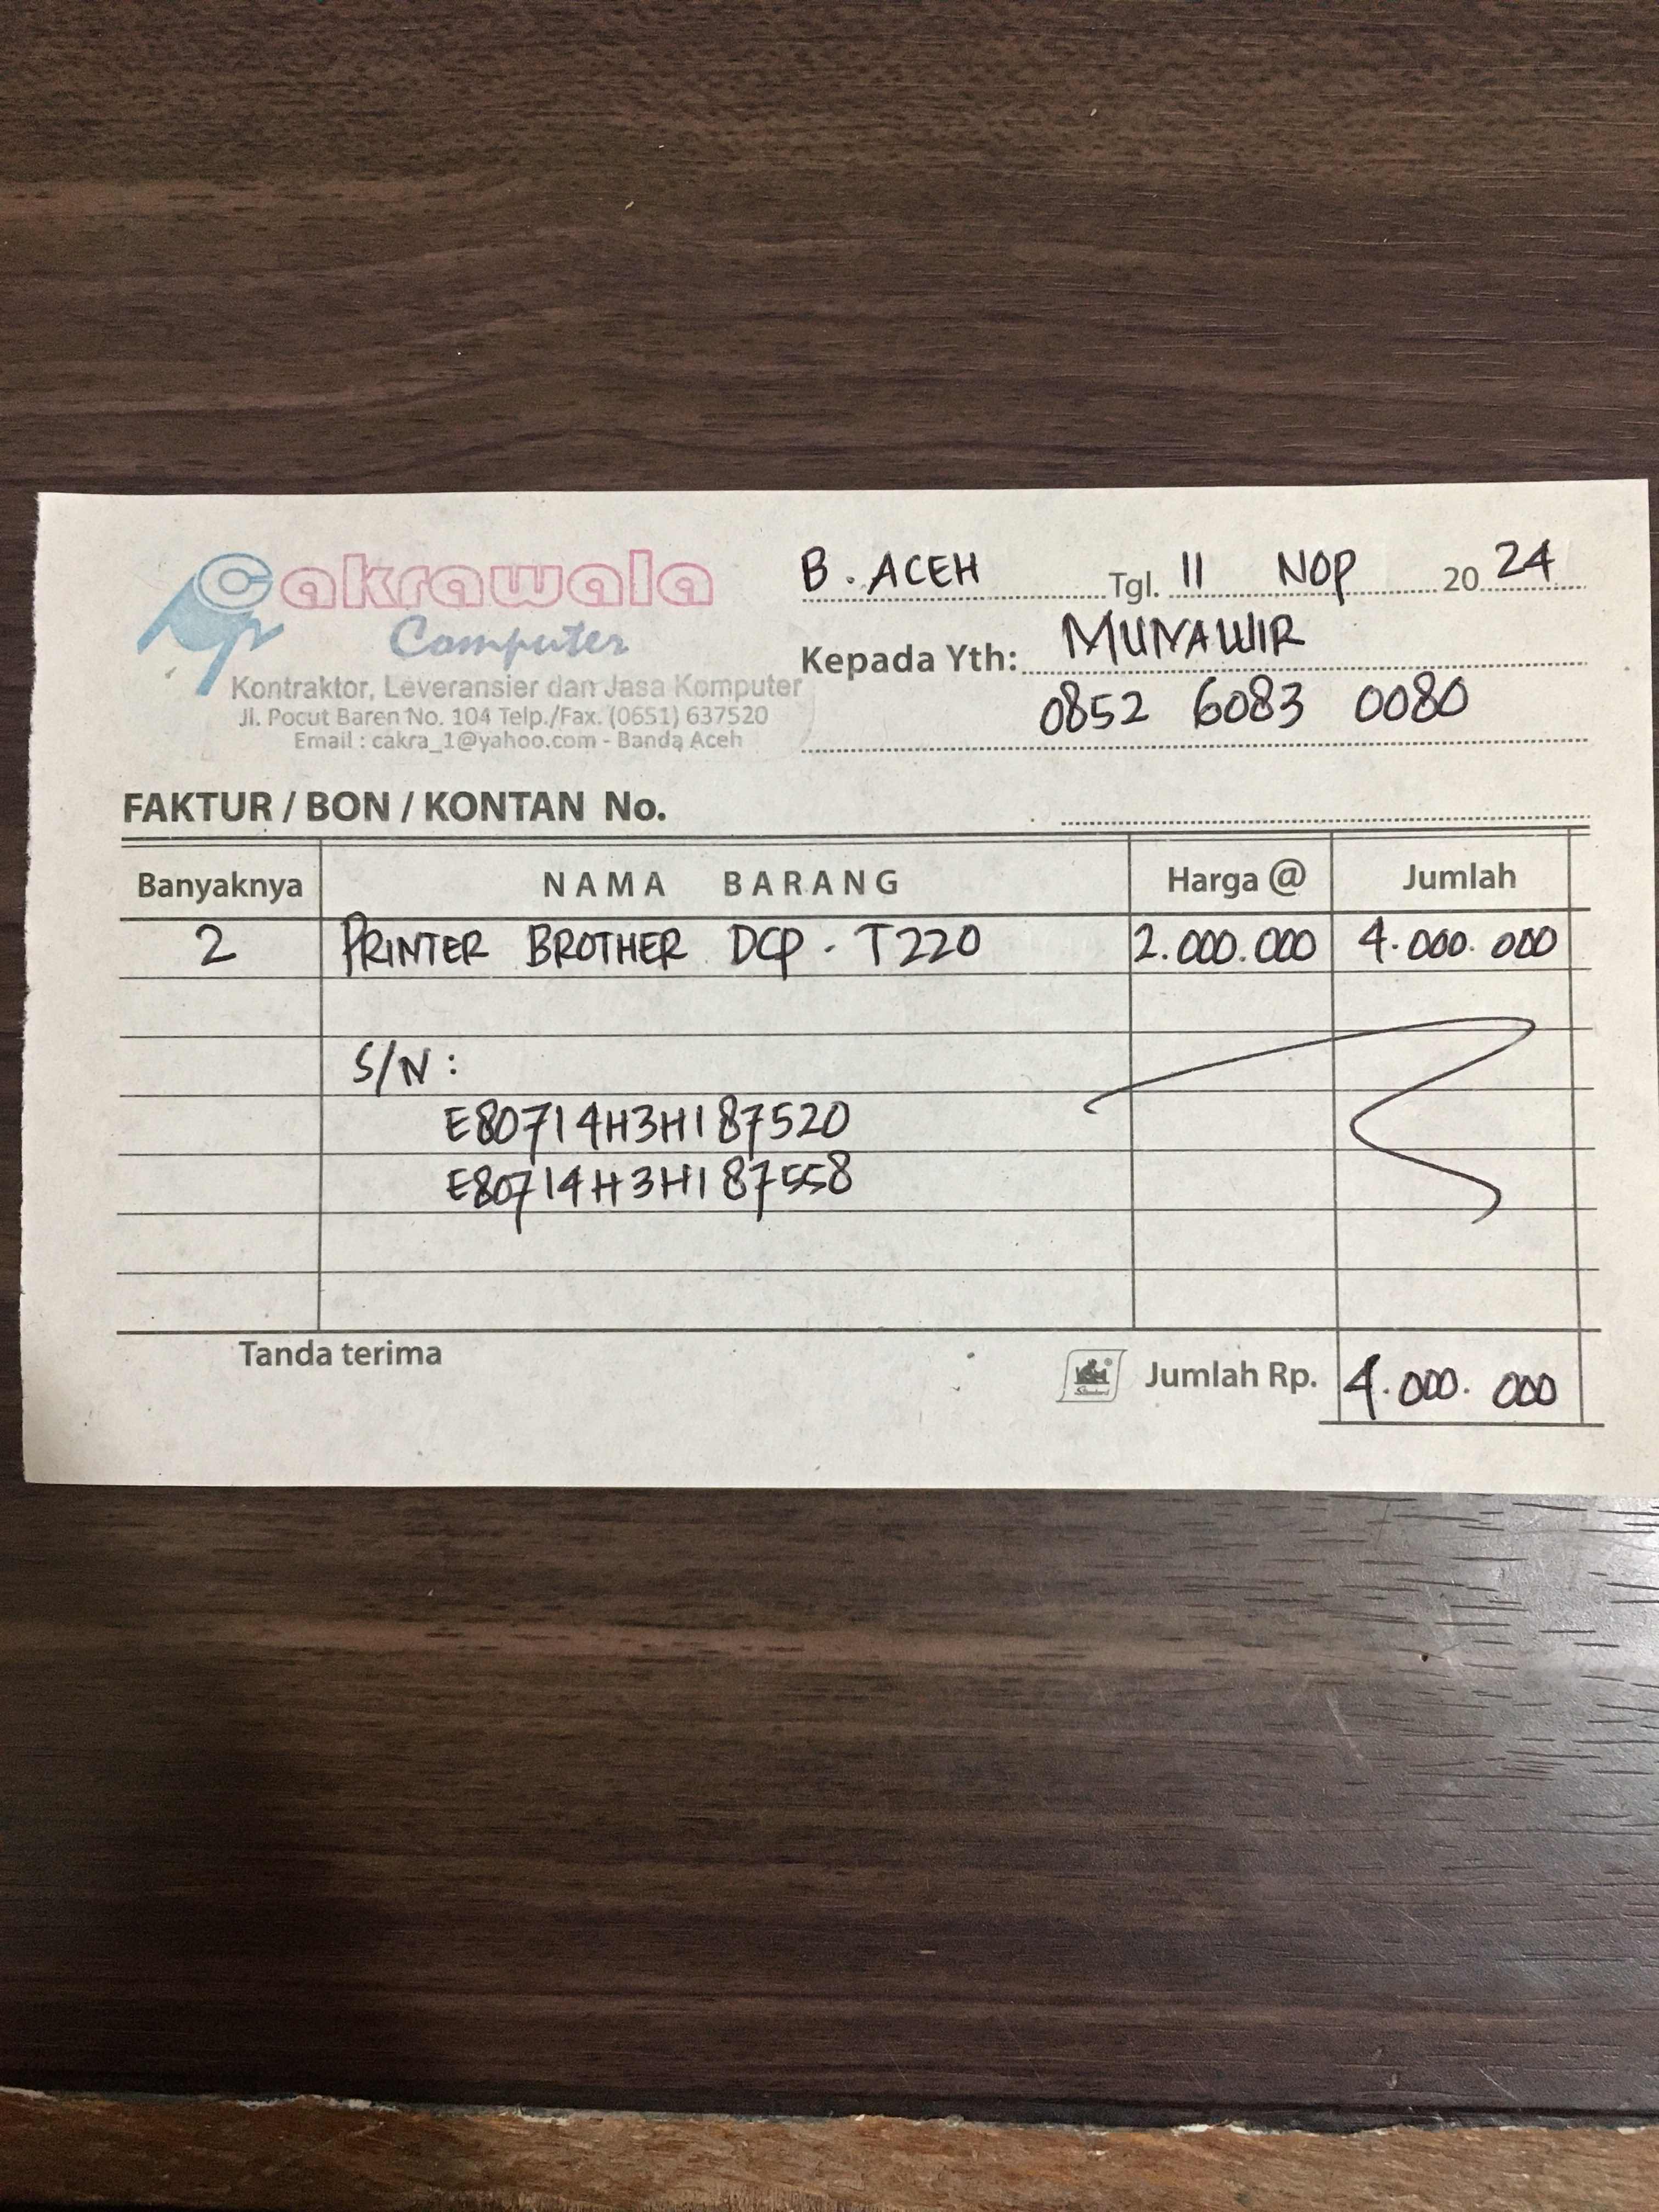 Cakrawala
Computer
Kontraktor, Leveransier dan Jasa Komputer
Jl. Pocut Baren No. 104 Telp./Fax. (0651) 637520
Email : cakra_1@yahoo.com - Banda Aceh
B. ACEH Tgl. 11 NOP 2024
Kepada Yth: MUNAWIR
0852 6083 0080
FAKTUR / BON / KONTAN No.
Banyaknya NAMA BARANG Harga @ Jumlah
2 PRINTER BROTHER DCP - T220 2.000.000 4.000.000
S/N :
E80714H3H187520
E80714H3H187558
Tanda terima Jumlah Rp. 4.000.000